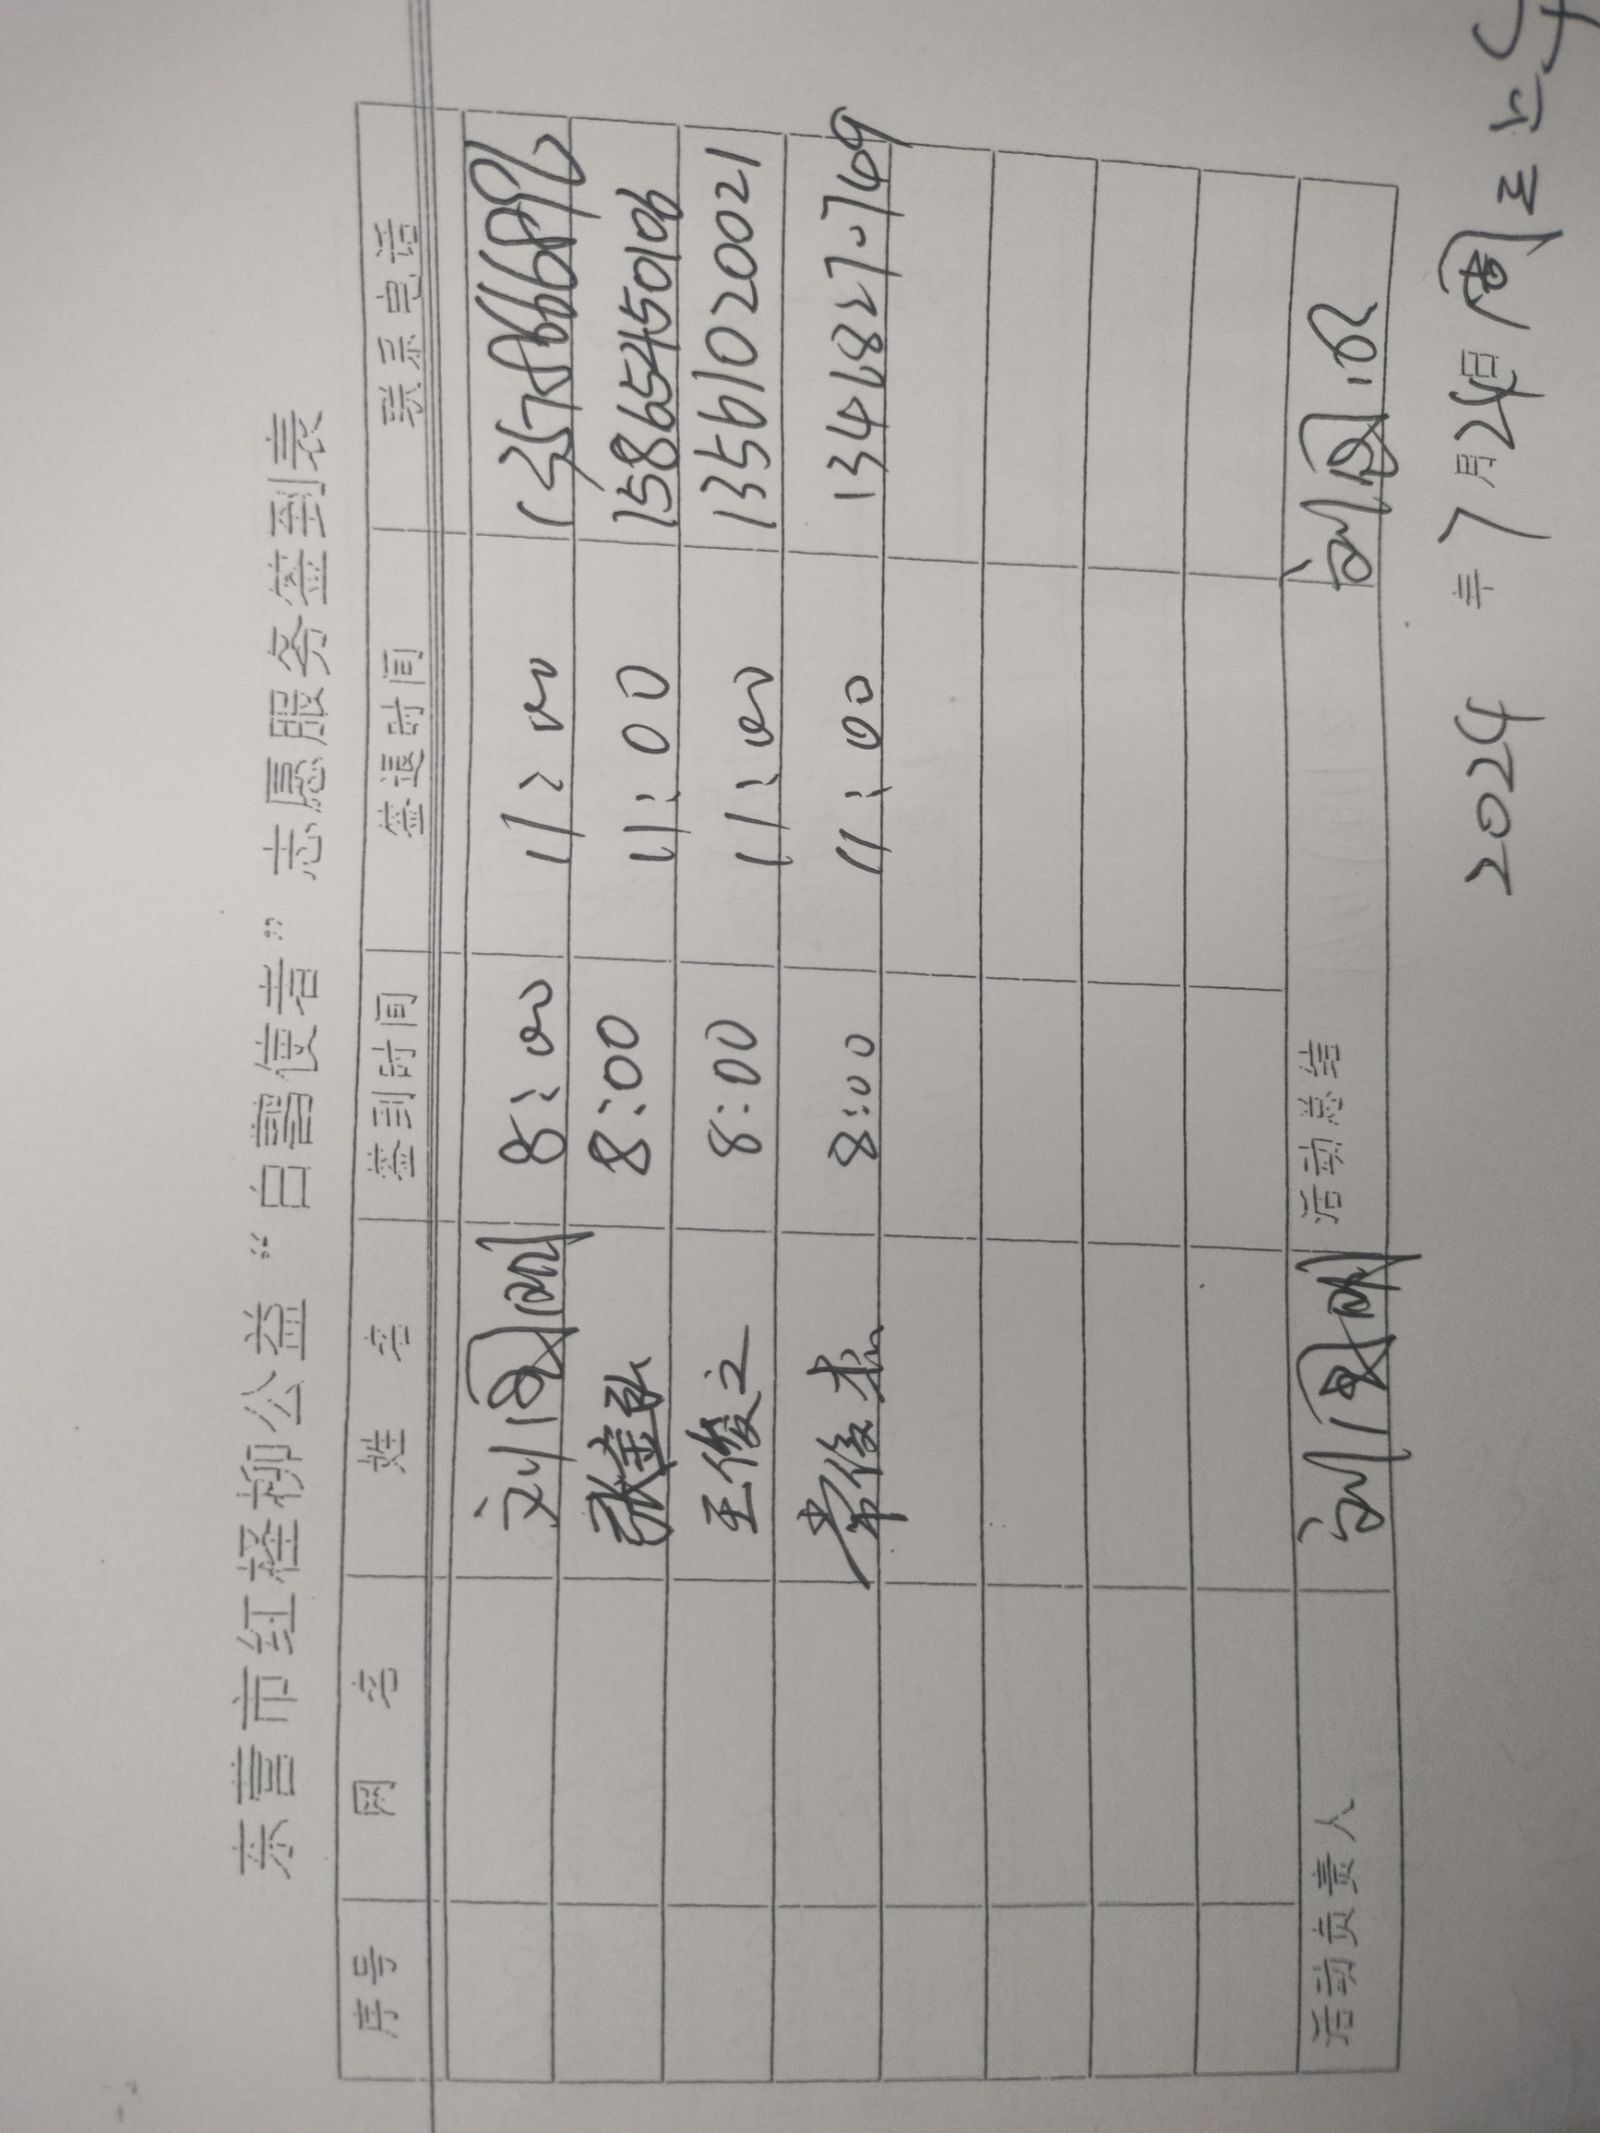 东营市红柽柳公益“白鹭使者”志愿服务签到表
序号 网名 姓名 签到时间 签退时间 联系电话
刘国刚 8:00 11:00
张金弘 8:00 11:00 15865450106
王俊之 8:00 11:00 13561020021
常俊杰 8:00 11:00 13468270769
活动负责人 刘国刚 活动总结
2024年7月24日 周三 上午